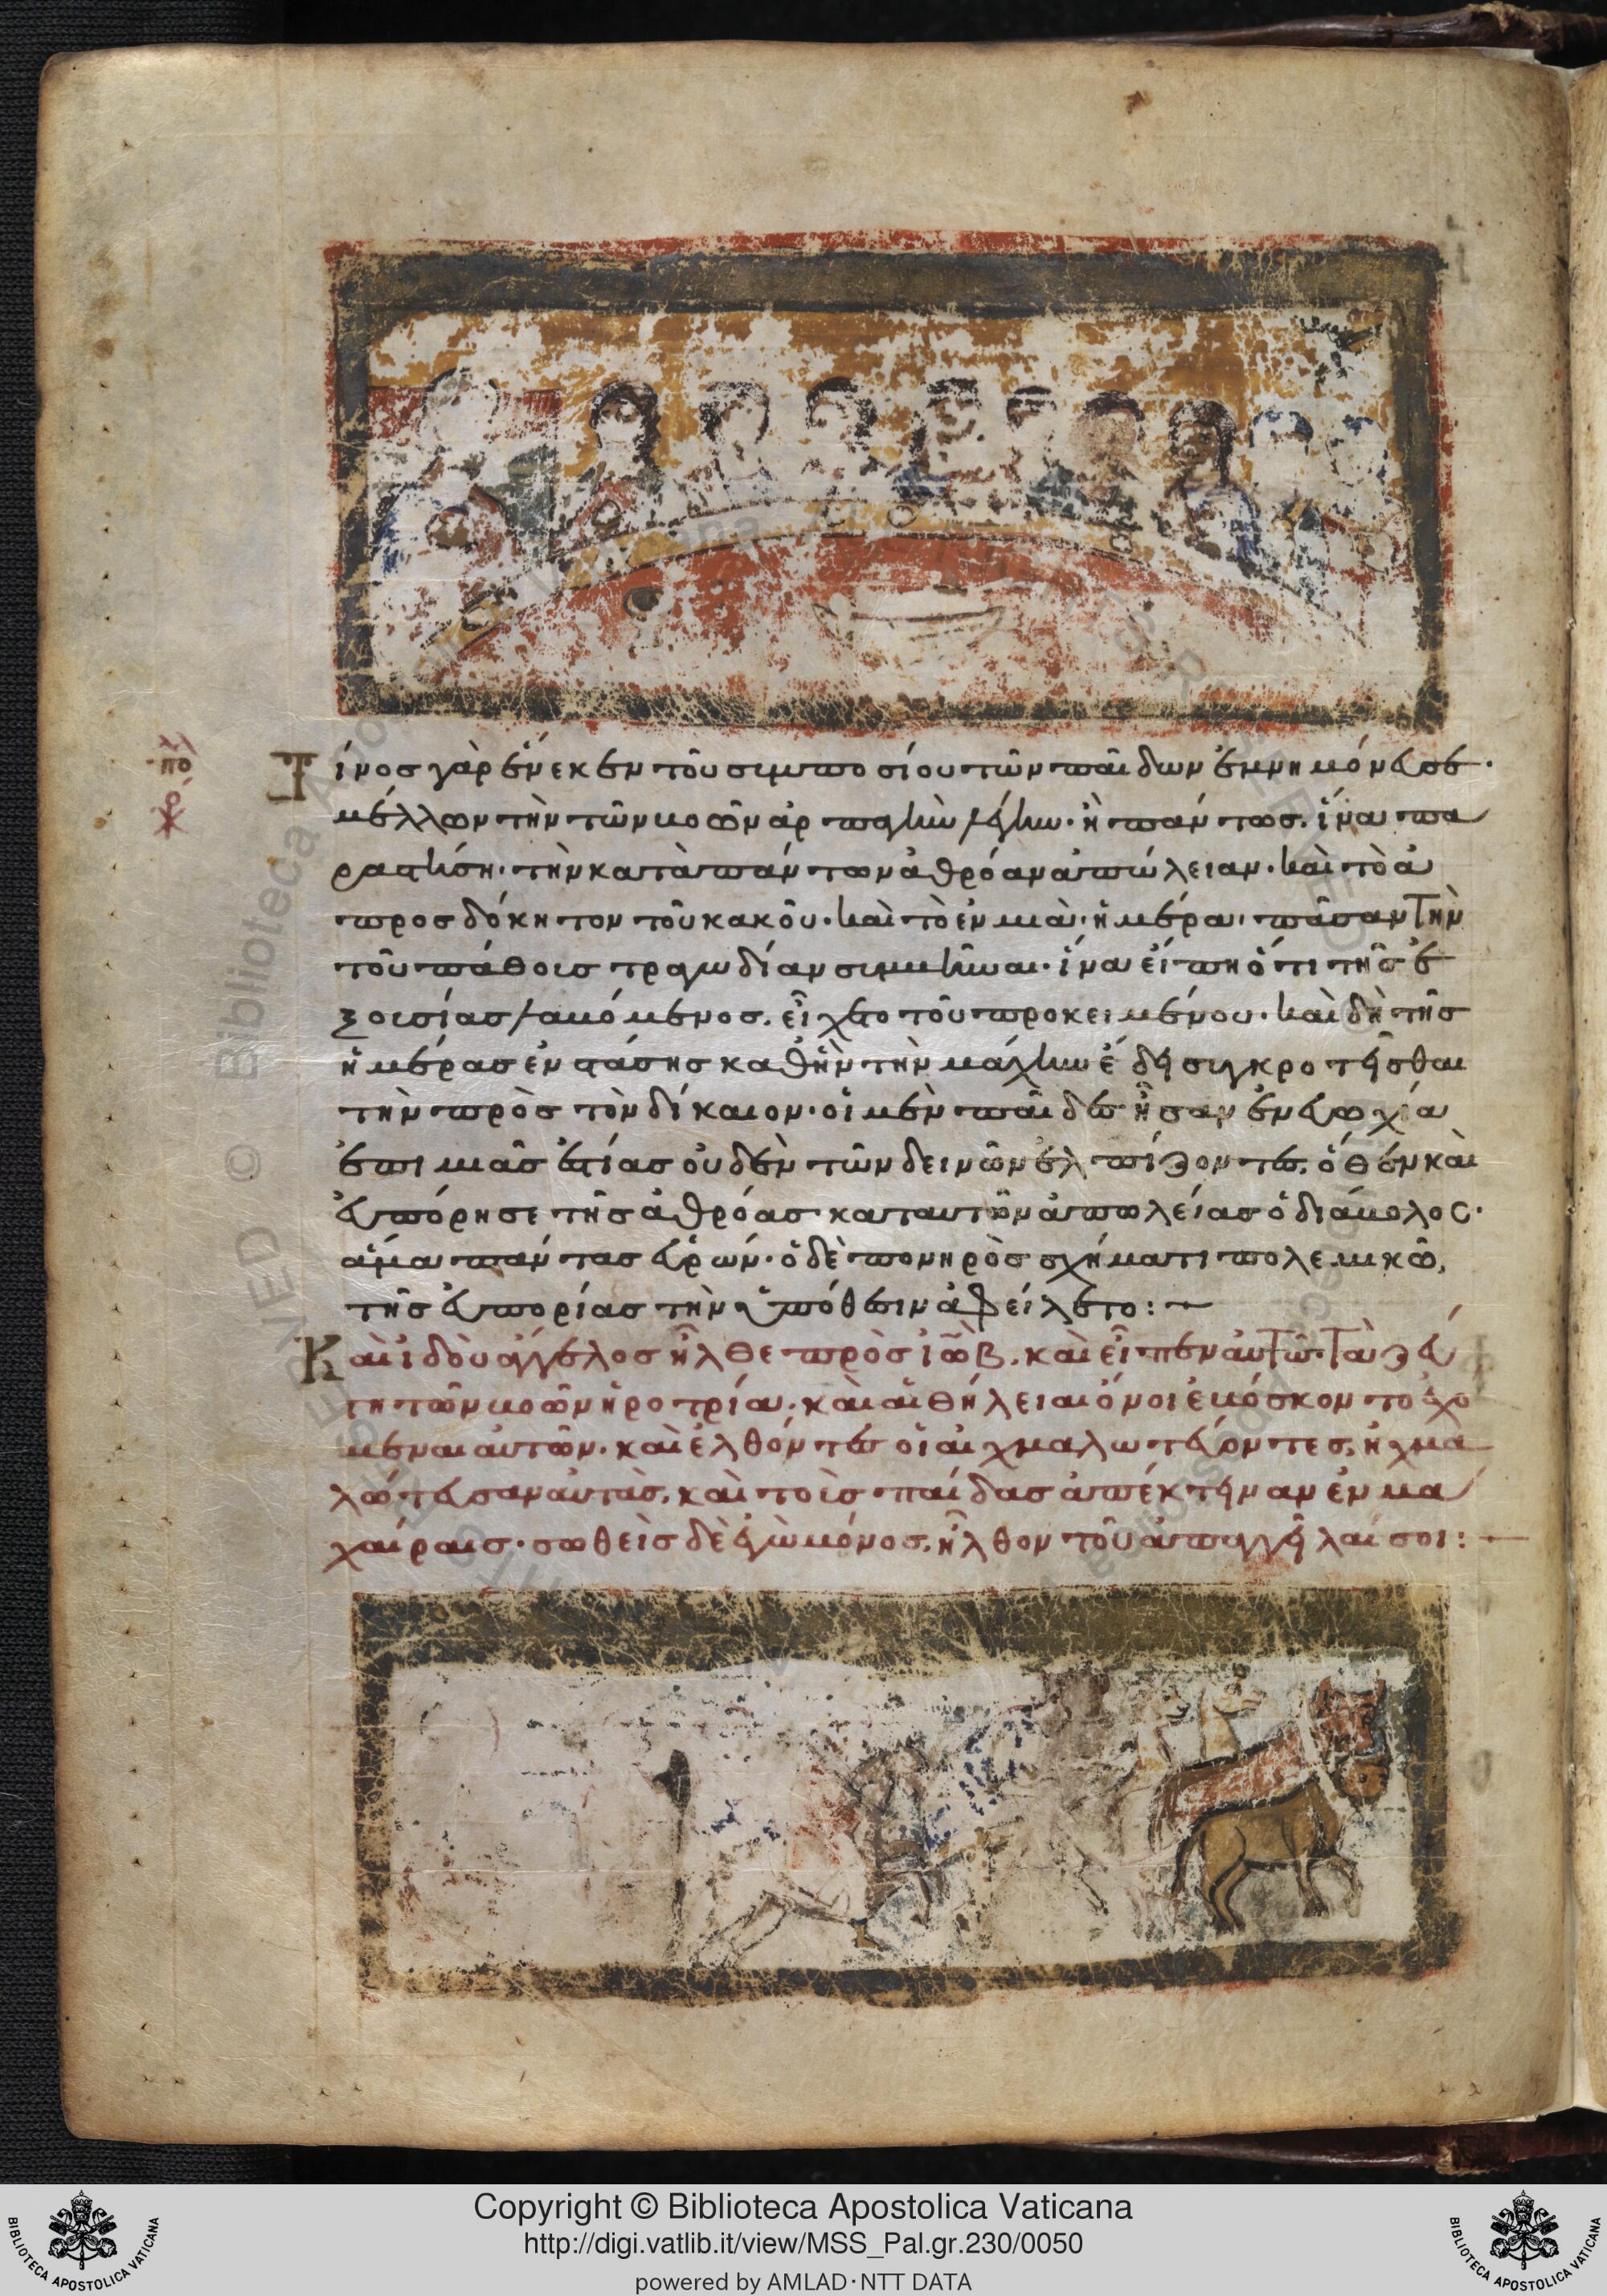 Τίνος γὰρ ἕνεκεν τοῦ συμποσίου τῶν παίδων ἐμνημόνευσε·
μέλλων τὴν τῶν βοῶν ἁρπαγὴν λέγειν· ἢ πάντως, ἵνα πα
ραστήσῃ· τὴν κατὰ πάντων ἀθρόαν ἀπώλειαν· καὶ τὸ ἀ
προσδόκητον τοῦ κακοῦ· καὶ τὸ ἐν μιᾷ ἡμέρα· πᾶσαν τὴν
τοῦ πάθους τραγωδίαν συμβῆναι· ἵνα εἴπη ὅτι τῆς ἐ
ξουσίας λαβόμενος, εἴχετο τοῦ προκειμένου· καὶ δὴ τῆς
ἡμέρας ἐνστάσης καθ' ἣν τὴν μάχην ἔδει συγκροτεῖσθαι
τὴν πρὸς τὸν δίκαιον· οἱ μὲν παῖδες ἦσαν ἐν εὐωχία
ἐπὶ μιᾶς ἑστίας οὐδὲν τῶν δεινῶν ἐλπίζοντες, ὅθεν καὶ
εὐπόρησε τῆς ἀθρόας κατ αυτῶν ἀπωλείας ὁ διάβολος·
ἅμα πάντας εὑρών· ὁ δὲ πονηρὸς σχήματι πολεμικῶ,
τῆς εὐπορίας τὴν ὑπόθεσιν ἀφείλετο:
Καὶ ἰδοὺ ἄγγελος ἦλθε πρὸς ἰὼβ, καὶ εἶπεν αὐτῶ· Τὰ ζεύ
γη τῶν βοῶν ἠροτρία· καὶ αἱ θήλειαι ὄνοι ἐβόσκοντο ἐχό
μεναι αὐτῶν· καὶ ἐλθόντες οἱ αἰχμαλωτεύοντες, ἠχμα
λώτευσαν αὐτὰς, καὶ τοὺς παῖδας ἀπέκτειναν ἐν μα
χαίραις· σωθεὶς δὲ ἐγὼ μόνος, ἦλθον τοῦ ἀπαγγεῖλαί σοι:
Copyright © Biblioteca Apostolica Vaticana
http://digi.vatlib.it/view/MSS_Pal.gr.230/0050
powered by AMLAD·NTT DATA
BIBLIOTECA APOSTOLICA VATICANA
BIBLIOTECA APOSTOLICA VATICANA